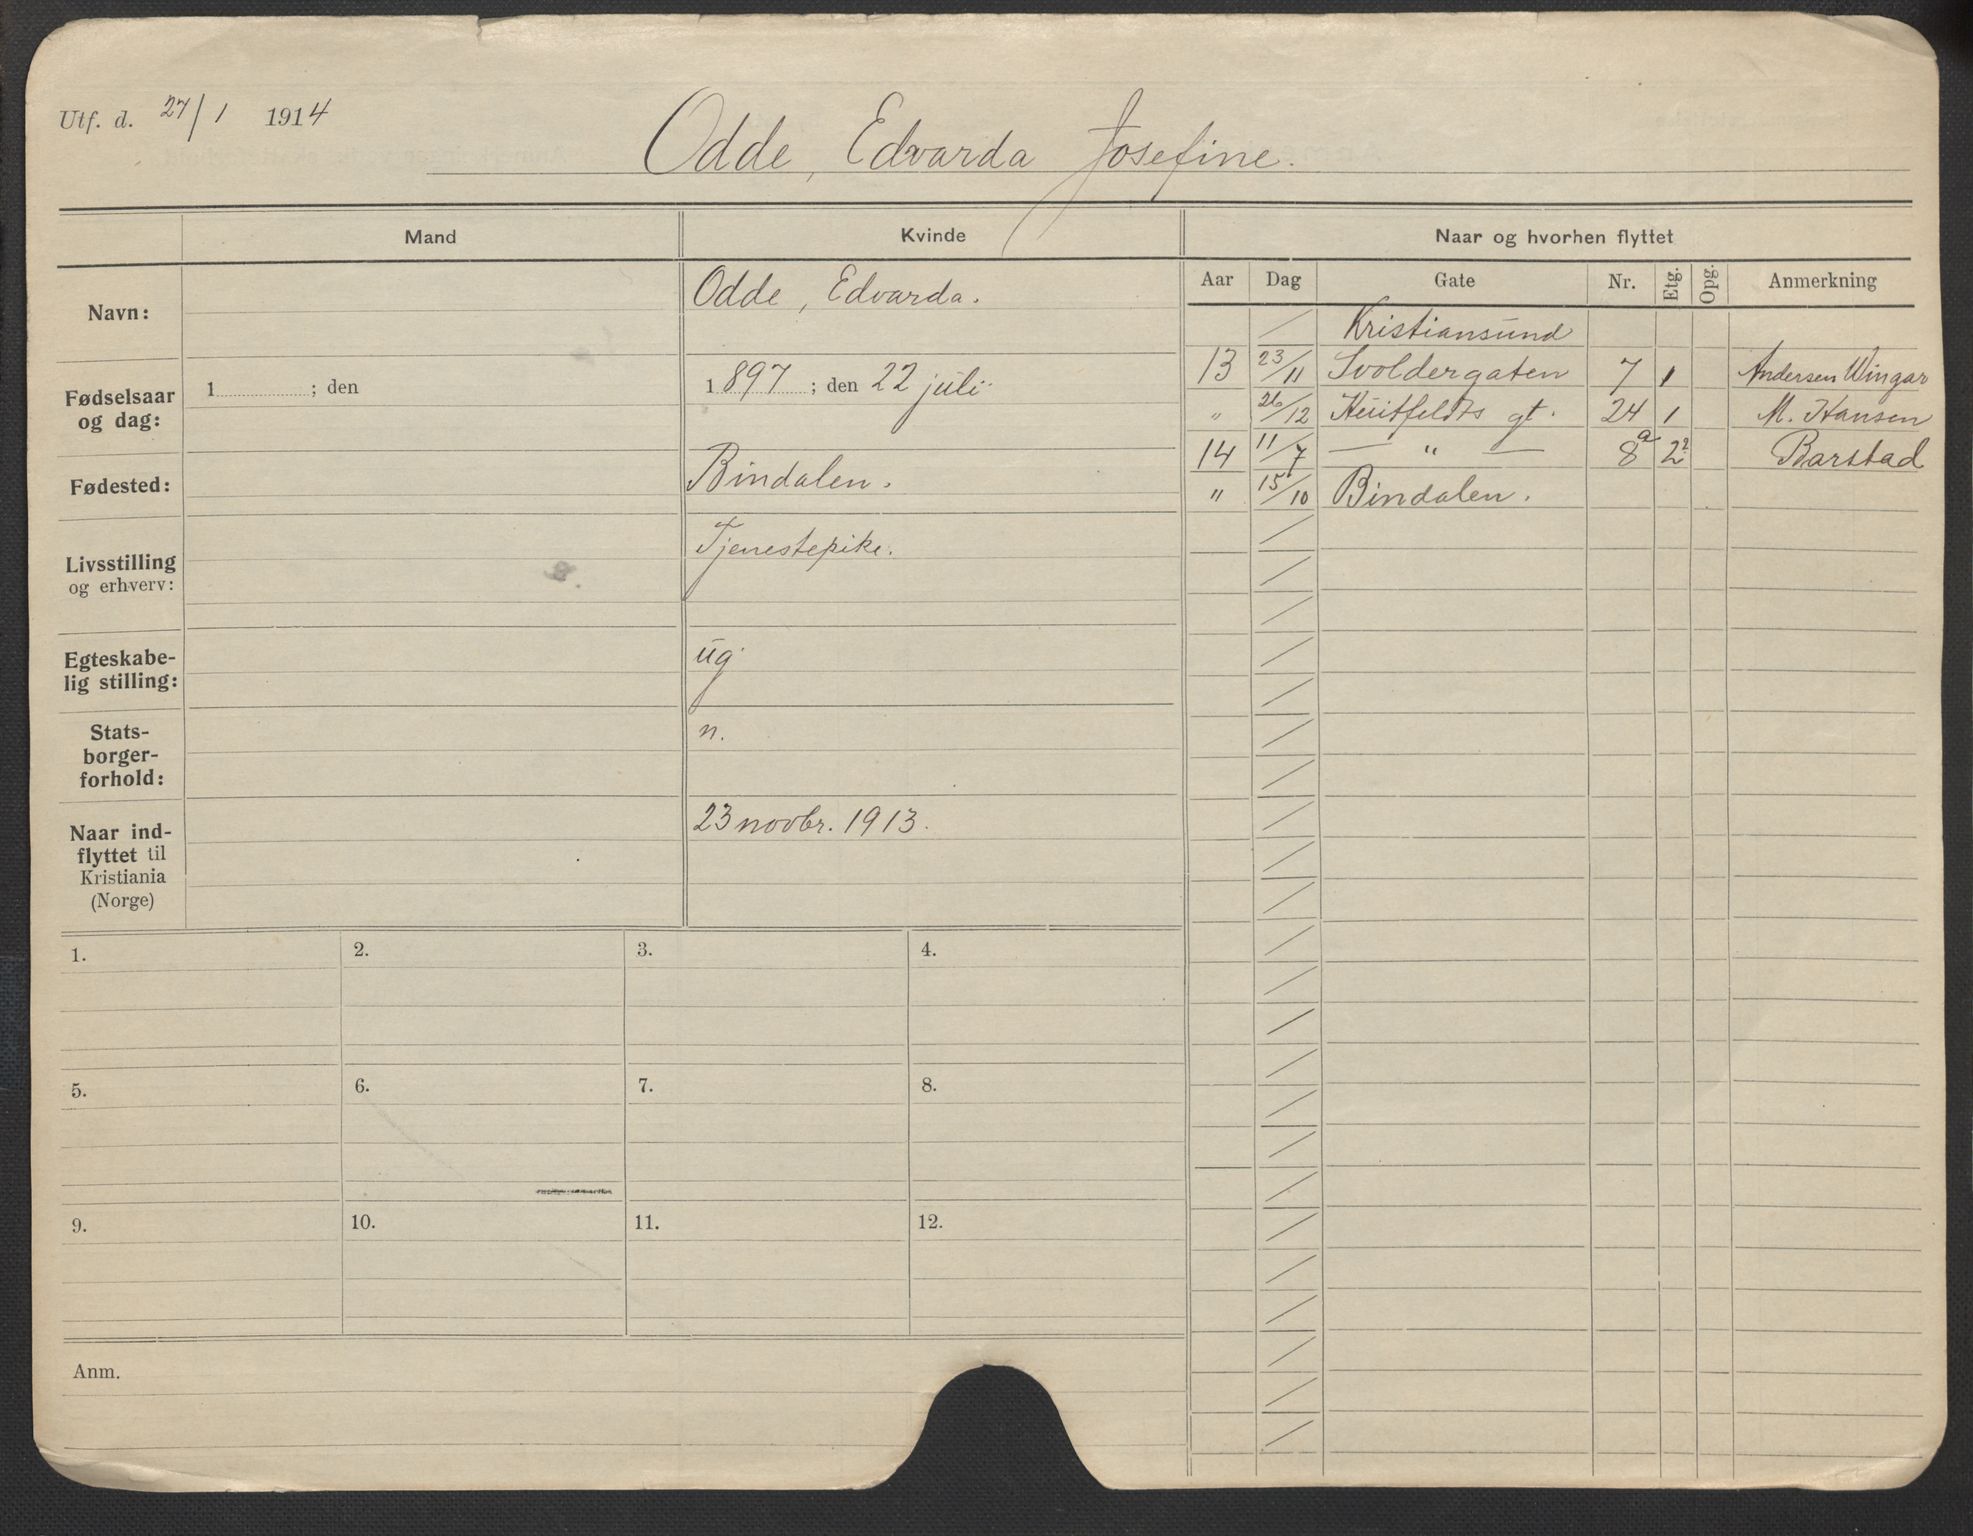 Utf. d. 27/1 1914
Odde, Edvarda Josefine.
Mand Kvinde Naar og hvorhen flyttet
Aar Dag Gate Nr. Etg. Opg. Anmerkning
Navn: Odde, Edvarda.
Fødselsaar og dag: 1 ; den 1897 ; den 22 juli
Fødested: Bindalen.
Livsstilling og erhverv: Tjenestepike.
Egteskabe-
lig stilling: ug
Stats-
borger-
forhold: n.
Naar ind-
flyttet til
Kristiania
(Norge) 23 novbr. 1913.
Kristiansund
13 23/11 Svoldergaten 7 1 Andersen Wingar
" 26/12 Huitfeldts gt. 24 1 M. Hansen
14 11/7 — " — 8a 2² Barstad
" 15/10 Bindalen.
1. 2. 3. 4.
5. 6. 7. 8.
9. 10. 11. 12.
Anm.